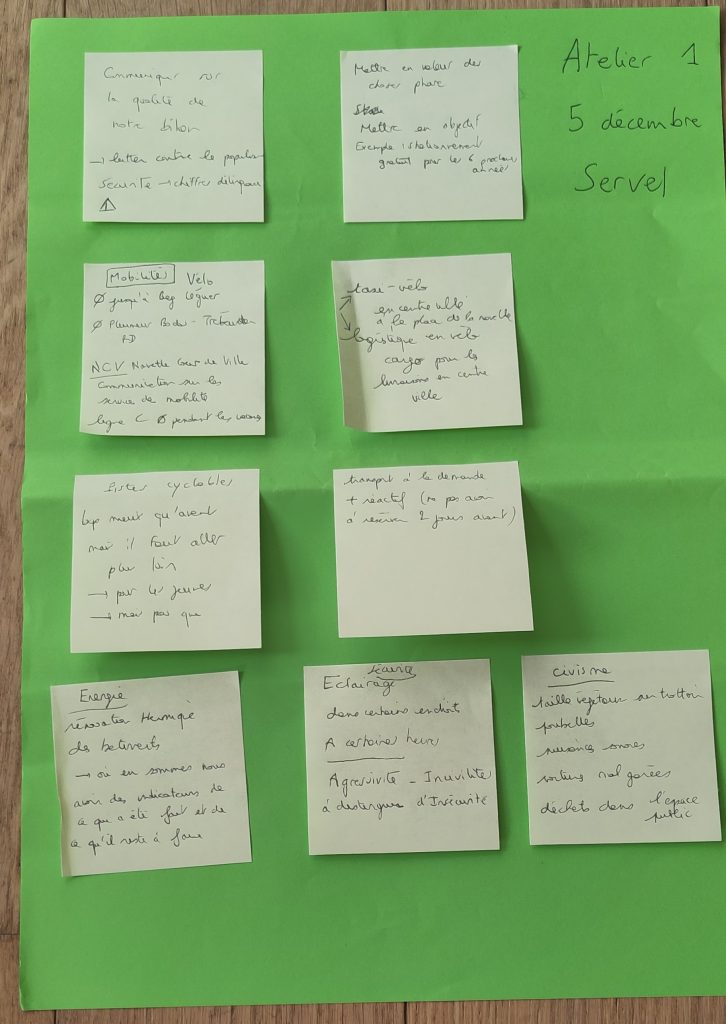 Atelier 1
5 décembre
Servel
Communiquer sur
la qualité de
notre bilan
→ lutter contre le populisme
Sécurité → chiffres délinquance
Mettre en valeur des
choses phare
Mettre en objectif
Exemple : stationnement
gratuit pour les 6 prochaines
années
Mobilités Vélo
Ø jusqu'à Beg Léguer
Ø Pleumeur Bodou - Trébeurden
NCV Navette Cœur de Ville
Communication sur les
service de mobilité
ligne C Ø pendant les vacances
taxi-vélo
en centre ville
à la place de la navette
logistique en vélo
cargo pour les
livraisons en centre
ville
Pistes cyclables
bcp mieux qu'avant
mais il faut aller
plus loin
→ pour les jeunes
→ mais pas que
transport à la demande
+ réactif (ne pas avoir
à réserver 2 jours avant)
Energie
rénovation thermique
des batiments
→ où en sommes nous
avoir des indicateurs de
ce qui a été fait et de
ce qu'il reste à faire
Sécurité
Eclairage
dans certains endroits
A certaines heures
Agressivité - Incivilité
à distinguer d'Insécurité
civisme
taille végétaux sur trottoir
poubelles
nuisances sonores
voitures mal garées
déchets dans l'espace
public